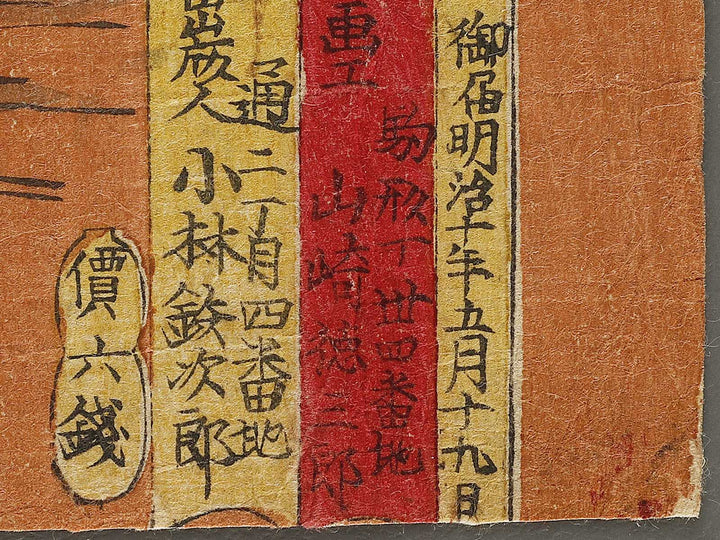 御届明治十年五月十九日
画工
駒形丁卅四番地
山崎徳三郎
通二丁目四番地
出版人 小林鉄次郎
價六錢